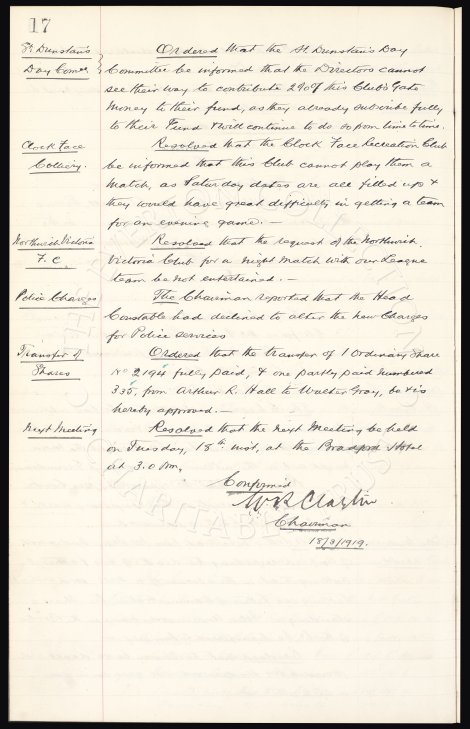 17
St. Dunstan's
Day Comee.
Ordered that the St. Dunstan's Day
Committee be informed that the Directors cannot
see their way to contribute 2% of this Club's Gate
Money to their fund, as they already subscribe fully
to their Fund & will continue to do so from time to time.
Clock Face
Colliery.
Resolved that the Clock Face Recreation Club
be informed that this Club cannot play them a
match, as Saturday dates are all filled up &
they would have great difficulty in getting a team
for an evening game. —
Northwich Victoria
F. C.
Resolved that the request of the Northwich
Victoria Club for a night match with our League
team be not entertained. —
Police Charges
The Chairman reported that the Head
Constable had declined to alter the new Charges
for Police services
Transfer of
Shares
Ordered that the transfer of 1 Ordinary Share
No 2194 fully paid, & one partly paid numbered
335, from Arthur R. Hall to Walter Gray, be & is
hereby approved. —
Next Meeting
Resolved that the next Meeting be held
on Tuesday, 18th inst, at the Bradford Hotel
at 3.0 Pm,
Confirmed
W R Clayton
Chairman
18/3/1919.